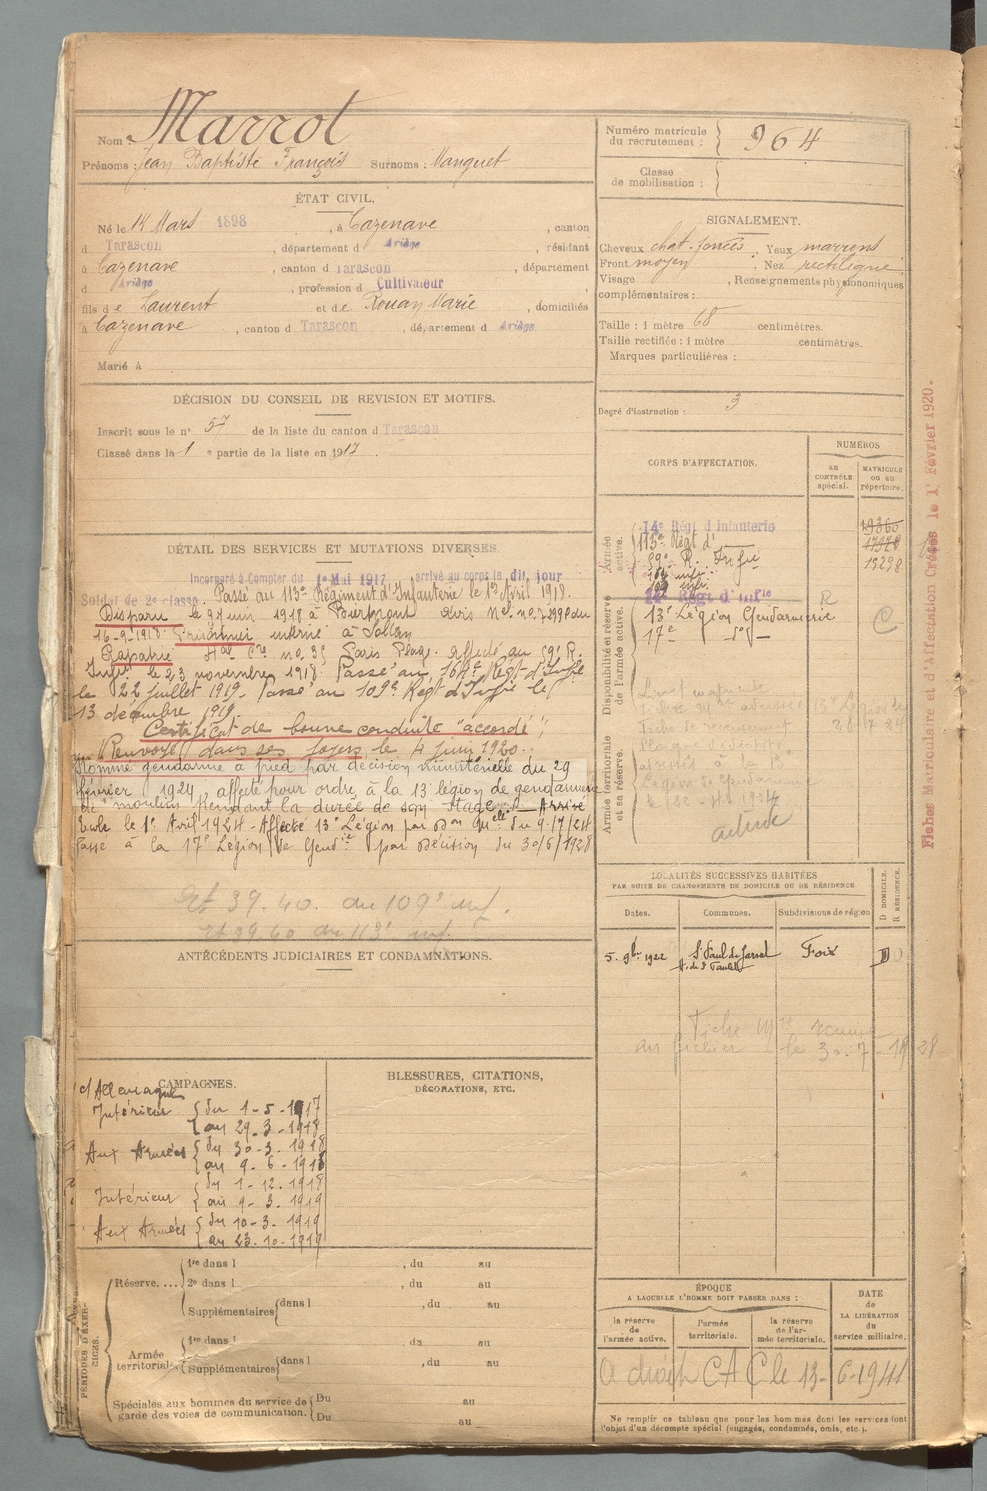 Nom : Marrot
Prénoms : Jean Baptiste François Surnoms : Manguet
Numéro matricule du recrutement : 964
Classe de mobilisation :
ÉTAT CIVIL.
Né le 14 Mars 1898, à Cazenave, canton
d Tarascon, département d Ariège, résidant
à Cazenave, canton d Tarascon, département
d Ariège, profession d Cultivateur
fils de Laurent et de Rouan Marie, domiciliés
à Cazenave, canton d Tarascon, département d Ariège
Marié à
SIGNALEMENT.
Cheveux chat. foncés, Yeux marrons
Front moyen, Nez rectiligne
Visage , Renseignements physionomiques
complémentaires :
Taille : 1 mètre 68 centimètres.
Taille rectifiée : 1 mètre centimètres.
Marques particulières :
Degré d'instruction : 3
DÉCISION DU CONSEIL DE REVISION ET MOTIFS.
Inscrit sous le n° 57 de la liste du canton d Tarascon
Classé dans la 1e partie de la liste en 1917.
DÉTAIL DES SERVICES ET MUTATIONS DIVERSES.
Incorporé à Compter du 1er Mai 1917 arrivé au corps le dit jour
Soldat de 2e classe. Passé au 113e Régiment d'Infanterie le 1er Avril 1918.
Disparu le 9 juin 1918 à avis Mel. no. 7299 du
16-9-1918. Prisonnier interné à
Rapatrié no. 35 Paris Plage. affecté au 59e R.
Infie le 23 novembre 1918. Passé au 164e Regt d'Infie
le 22 juillet 1919. Passé au 109e Regt d'Infie le
13 décembre 1919.
Certificat de bonne conduite "accordé",
Renvoyé dans ses foyers le 4 juin 1920.
Nommé gendarme à pied par décision ministérielle du 29
février 1924, affecté pour ordre, à la 13e légion de gendarmerie
de moulins pendant la durée de son stage. Arrivé
Ecole le 1er Avril 1924 - Affecté 13e Légion par Don Melle du 9/7/24
Passé à la 17e Légion de Gendie par décision du 30/6/1928
Et 39.40. du 109e inf.
Et 39.40 du 113e inf.
CORPS D'AFFECTATION.
NUMÉROS
AU CONTRÔLE spécial.
MATRICULE OU AU répertoire.
Armée active.
14e Régt d'Infanterie
113e Régt d'
59e R. Infie
164e inf.
109 inf.
19360
17328
13298
Disponibilité et réserve de l'armée active.
14e Régt d'Infie R
13e Légion Gendarmerie C
17e do
Armée territoriale et sa réserve.
Livret matricule
Légion de Gendarmerie
le 22-4-1924
active
Fiches Matriculaire et d'Affectation Créées le 1er Février 1920.
LOCALITÉS SUCCESSIVES HABITÉES
PAR SUITE DE CHANGEMENTS DE DOMICILE OU DE RÉSIDENCE
Dates. Communes. Subdivisions de région D DOMICILE. R RÉSIDENCE.
5. 9bre 1922 St Paul de Jarrat Foix D
Fiche Mre remise
au fichier le 30-7-1928
ANTÉCÉDENTS JUDICIAIRES ET CONDAMNATIONS.
CAMPAGNES.
c/ Allemagne
Intérieur { du 1-5-1917
{ au 29.3-1918
Aux Armées { du 30-3-1918
{ au 9-6-1918
Intérieur { du 1-12-1918
{ au 9-3-1919
Aux Armées { du 10-3-1919
{ au 23.10-1919
BLESSURES, CITATIONS,
DÉCORATIONS, ETC.
PÉRIODES D'EXERCICES.
Réserve.... 1re dans l , du au
2e dans l , du au
Supplémentaires dans l , du au
Armée territoriale. 1re dans l , du au
Supplémentaires dans l , du au
Spéciales aux hommes du service de garde des voies de communication. Du au
Du au
ÉPOQUE
A LAQUELLE L'HOMME DOIT PASSER DANS :
la réserve de l'armée active. l'armée territoriale. la réserve de l'armée territoriale.
DATE de LA LIBÉRATION du service militaire.
A droit CAC le 13-6-1941
Ne remplir ce tableau que pour les hommes dont les services font
l'objet d'un décompte spécial (engagés, condamnés, omis, etc.).